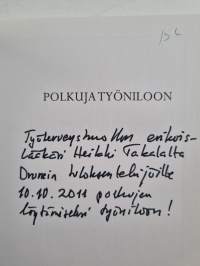 15€
POLKUJA TYÖNILOON
Työterveyshuollon erikois-
lääkäri Heikki Takalalta
tuloksentekijöille
10.10.2011 polkujen
löytämiseksi työniloon!